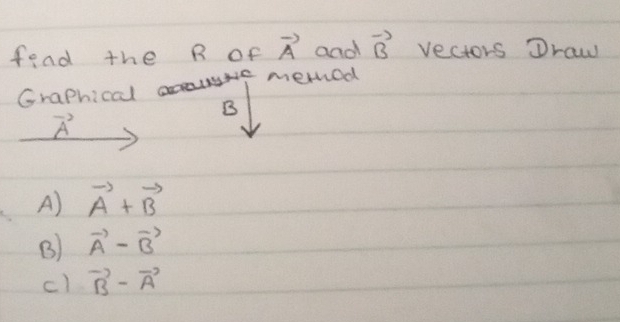 find the R of A⃗ and B⃗ vectors Draw
Graphical method
A⃗
B
A) A⃗ + B⃗
B) A⃗ - B⃗
C) B⃗ - A⃗